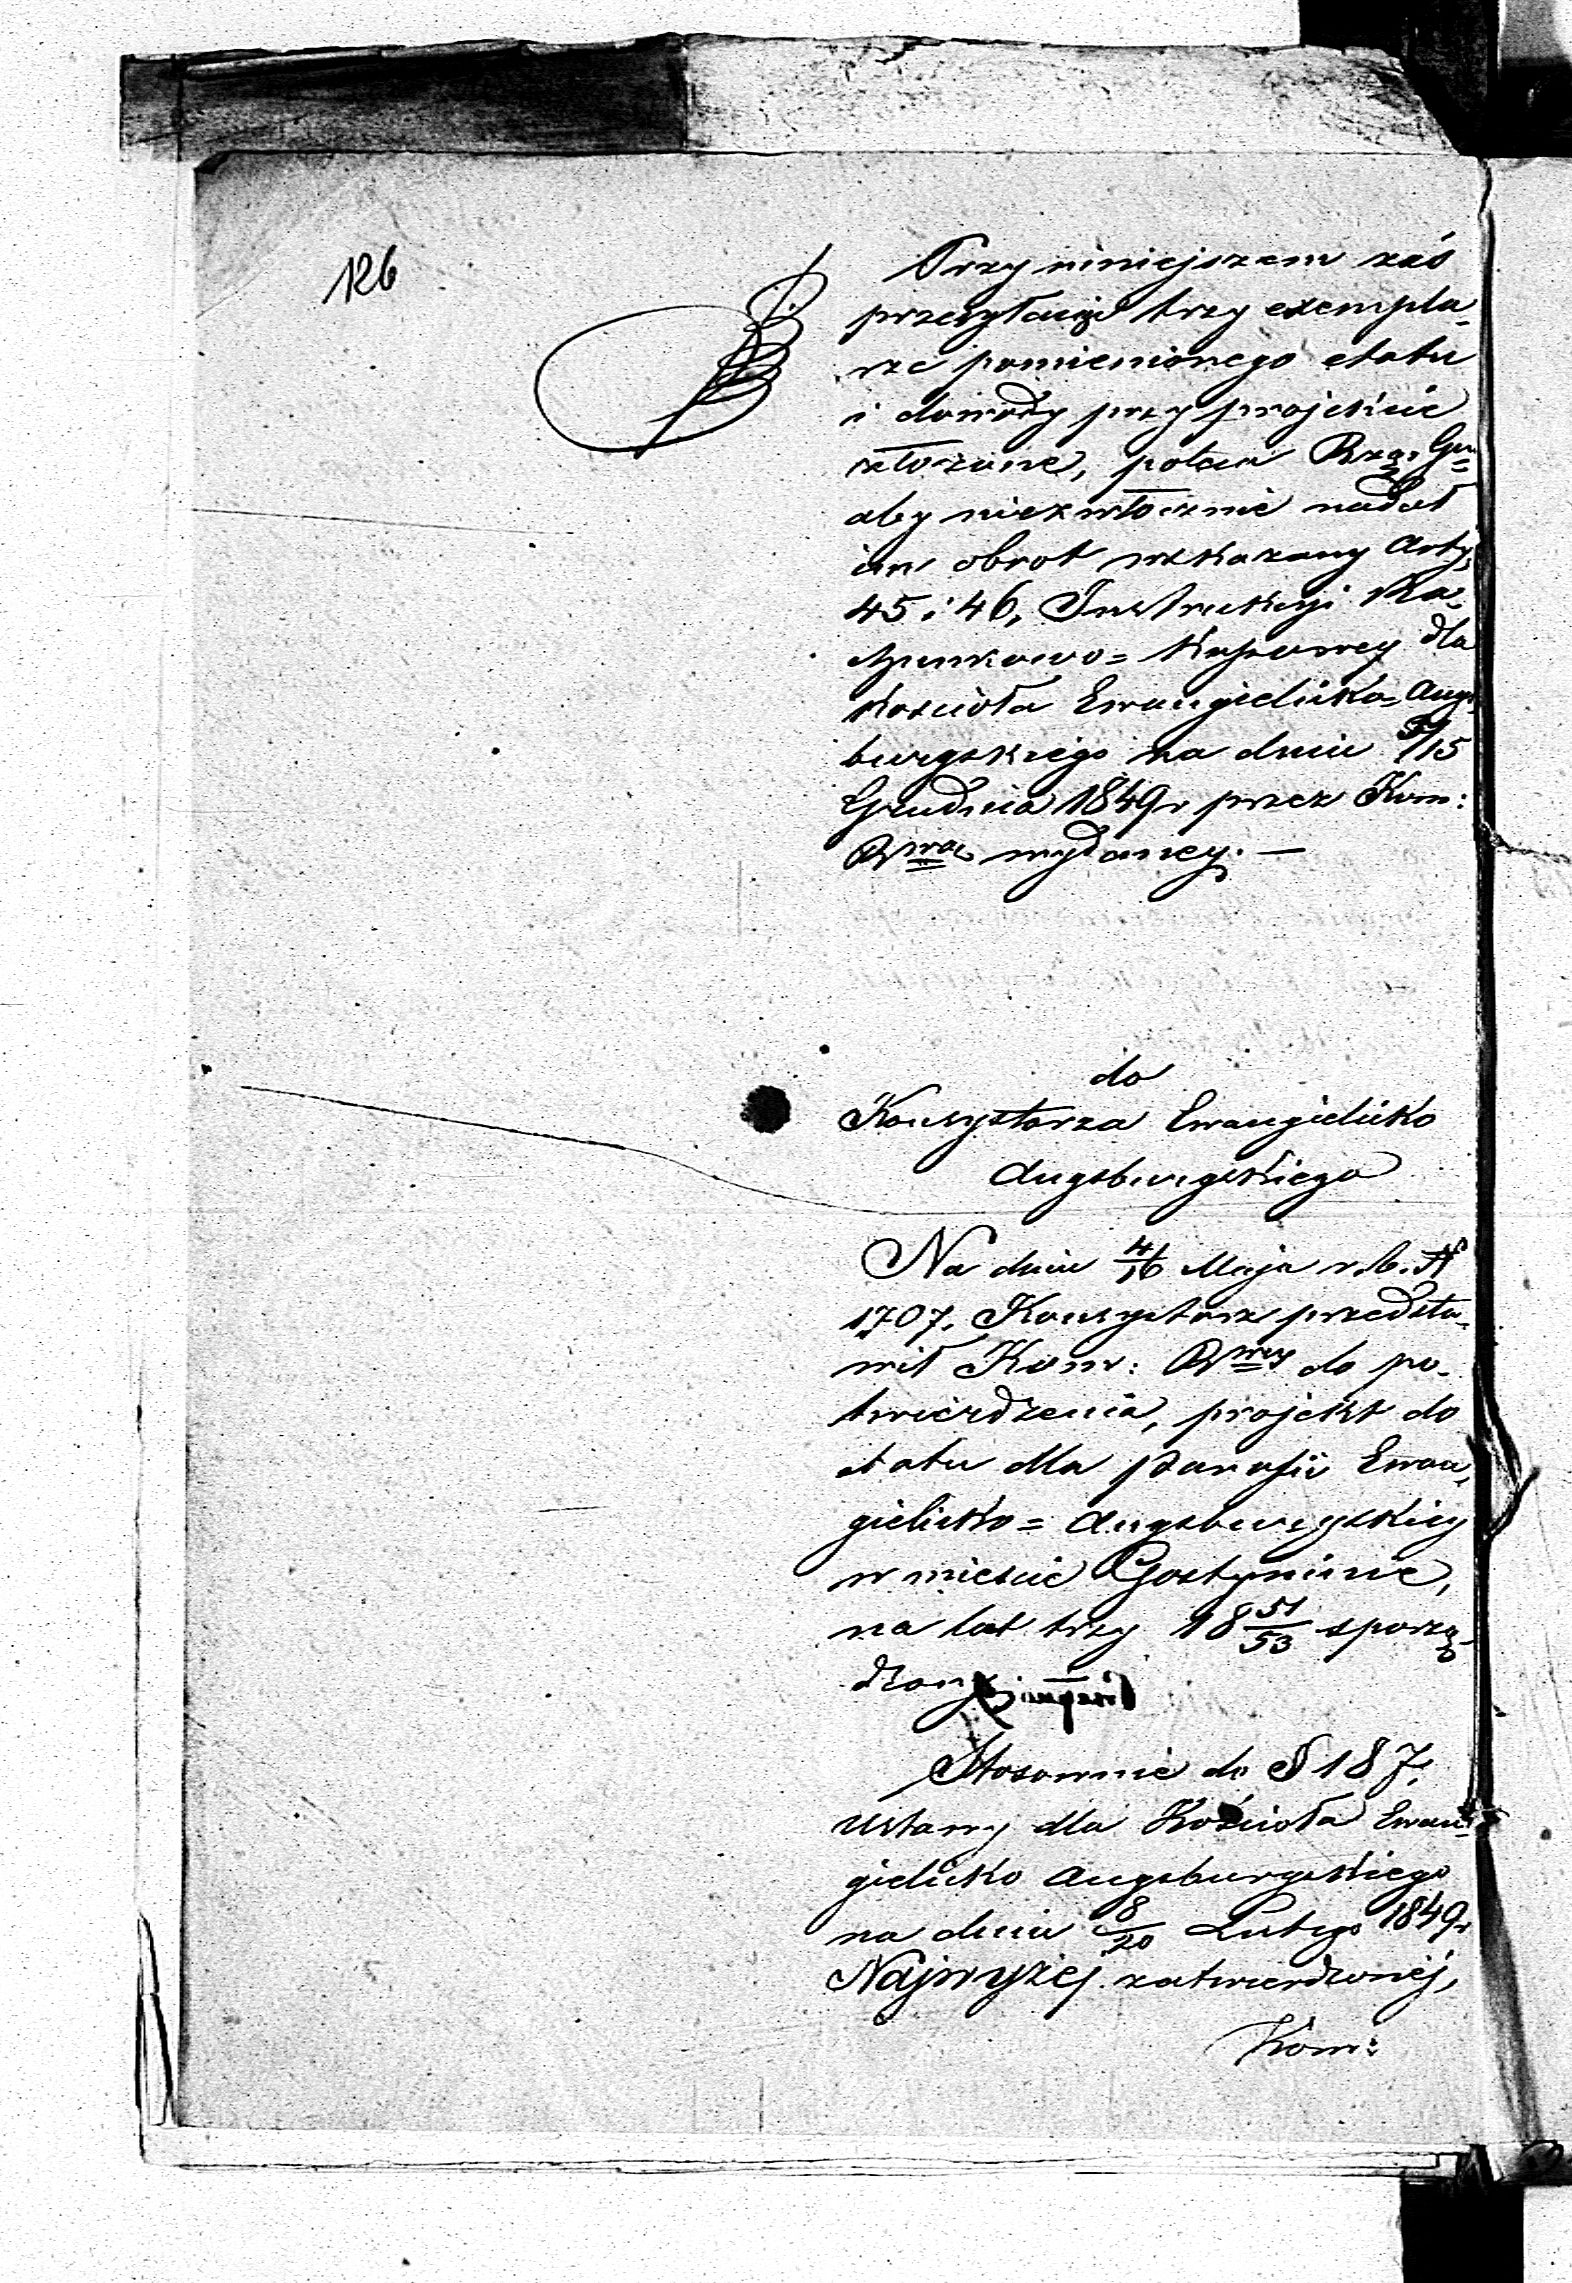 126
Przy niniejszem zaś
przesyłając trzy exempla-
rze pomienionego etatu
i dowody przy projekcie
złożone, poleca Rzą: Gu:
aby niezwłocznie nadał
im obrot wskazany Arty:
45 i 46. Instrukcyi Ra-
chunkowo= Kassowey dla
Kościoła Ewangielicko-Augs-
burgskiego na dniu 3/15
Grudnia 1849 r przez Kom:
Rwą wydaney. —
do
Konsystorza Ewangielicko
Augsburgskiego
Na dniu 4/16 Maja r. b. N
1707. Konsystorz przedsta-
wił Kom: Rwey do po-
twierdzenia, projekt do
etatu dla Parafii Ewan-
gielicko= Augsburgskiey
w mieście Gostyninie,
na lat trzy 18 51/53 sporzą-
dzony
Stosownie do § 187.
Ustawy dla Kościoła Ewan-
gielicko Augsburgskiego
na dniu 8/20 Lutego 1849 r
Najwyżej zatwierdzonéj,
Kom: